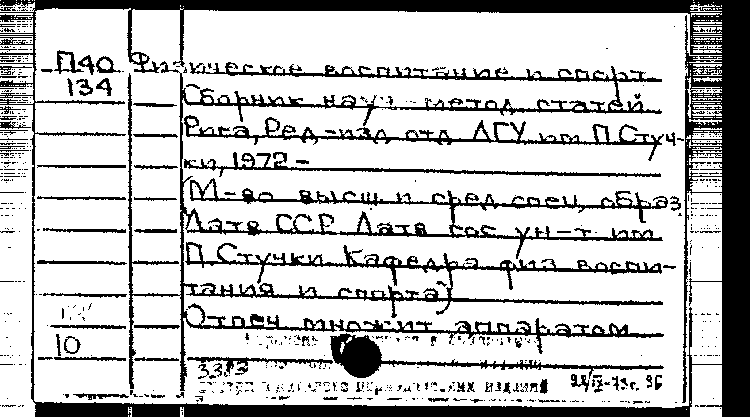 П40 Физическое воспитание и спорт
134 Сборник науч.-метод. статей
Рига, Ред.-изд. отд. ЛГУ им П.Стуч-
ки, 1972 -
(М-во высш и сред. спец. образ.
Латв ССР. Латв гос ун-т им
П. Стучки. Кафедра физ воспи-
тания и спорта)
Отпеч множит аппаратом
10
3383